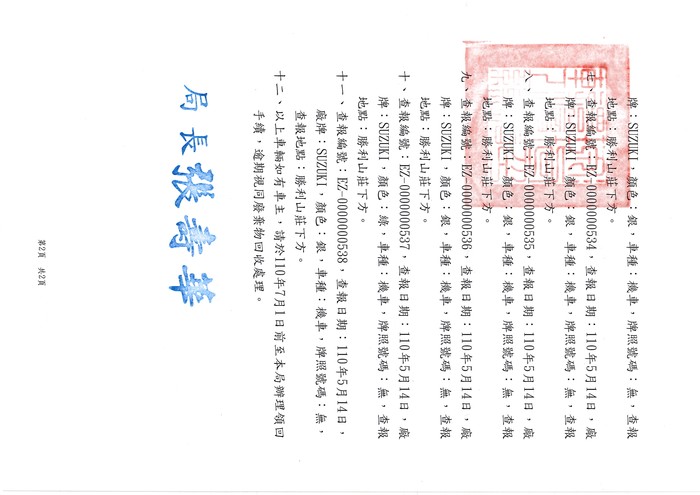 牌：SUZUKI，顏色：銀，車種：機車，牌照號碼：無，查報
地點：勝利山莊下方。
七、查報編號：EZ-0000000534，查報日期：110年5月14日，廠
牌：SUZUKI，顏色：銀，車種：機車，牌照號碼：無，查報
地點：勝利山莊下方。
八、查報編號：EZ-0000000535，查報日期：110年5月14日，廠
牌：SUZUKI，顏色：銀，車種：機車，牌照號碼：無，查報
地點：勝利山莊下方。
九、查報編號：EZ-0000000536，查報日期：110年5月14日，廠
牌：SUZUKI，顏色：銀，車種：機車，牌照號碼：無，查報
地點：勝利山莊下方。
十、查報編號：EZ-0000000537，查報日期：110年5月14日，廠
牌：SUZUKI，顏色：綠，車種：機車，牌照號碼：無，查報
地點：勝利山莊下方。
十一、查報編號：EZ-0000000538，查報日期：110年5月14日，
廠牌：SUZUKI，顏色：銀，車種：機車，牌照號碼：無，
查報地點：勝利山莊下方。
十二、以上車輛如有車主，請於110年7月1日前至本局辦理領回
手續，逾期視同廢棄物回收處理。
局長 張壽華
第2頁 共2頁